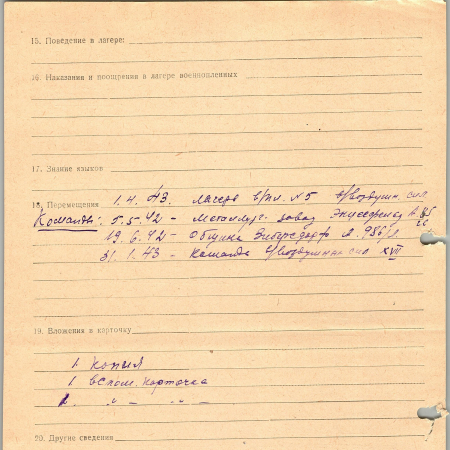 15. Поведение в лагере:
16. Наказания и поощрения в лагере военнопленных
17. Знание языков
18. Перемещения 1.4.43. лагерь в/пл. №5 в/воздушн. сил
Команды: 5.5.42 - завод
19.6.42 - Община Зиберсдорф А. 986/Л
31.1.43 - Команда в/воздушных сил XVII
19. Вложения в карточку
1 копия
1 вспом. карточка
1 " - " -
20. Другие сведения